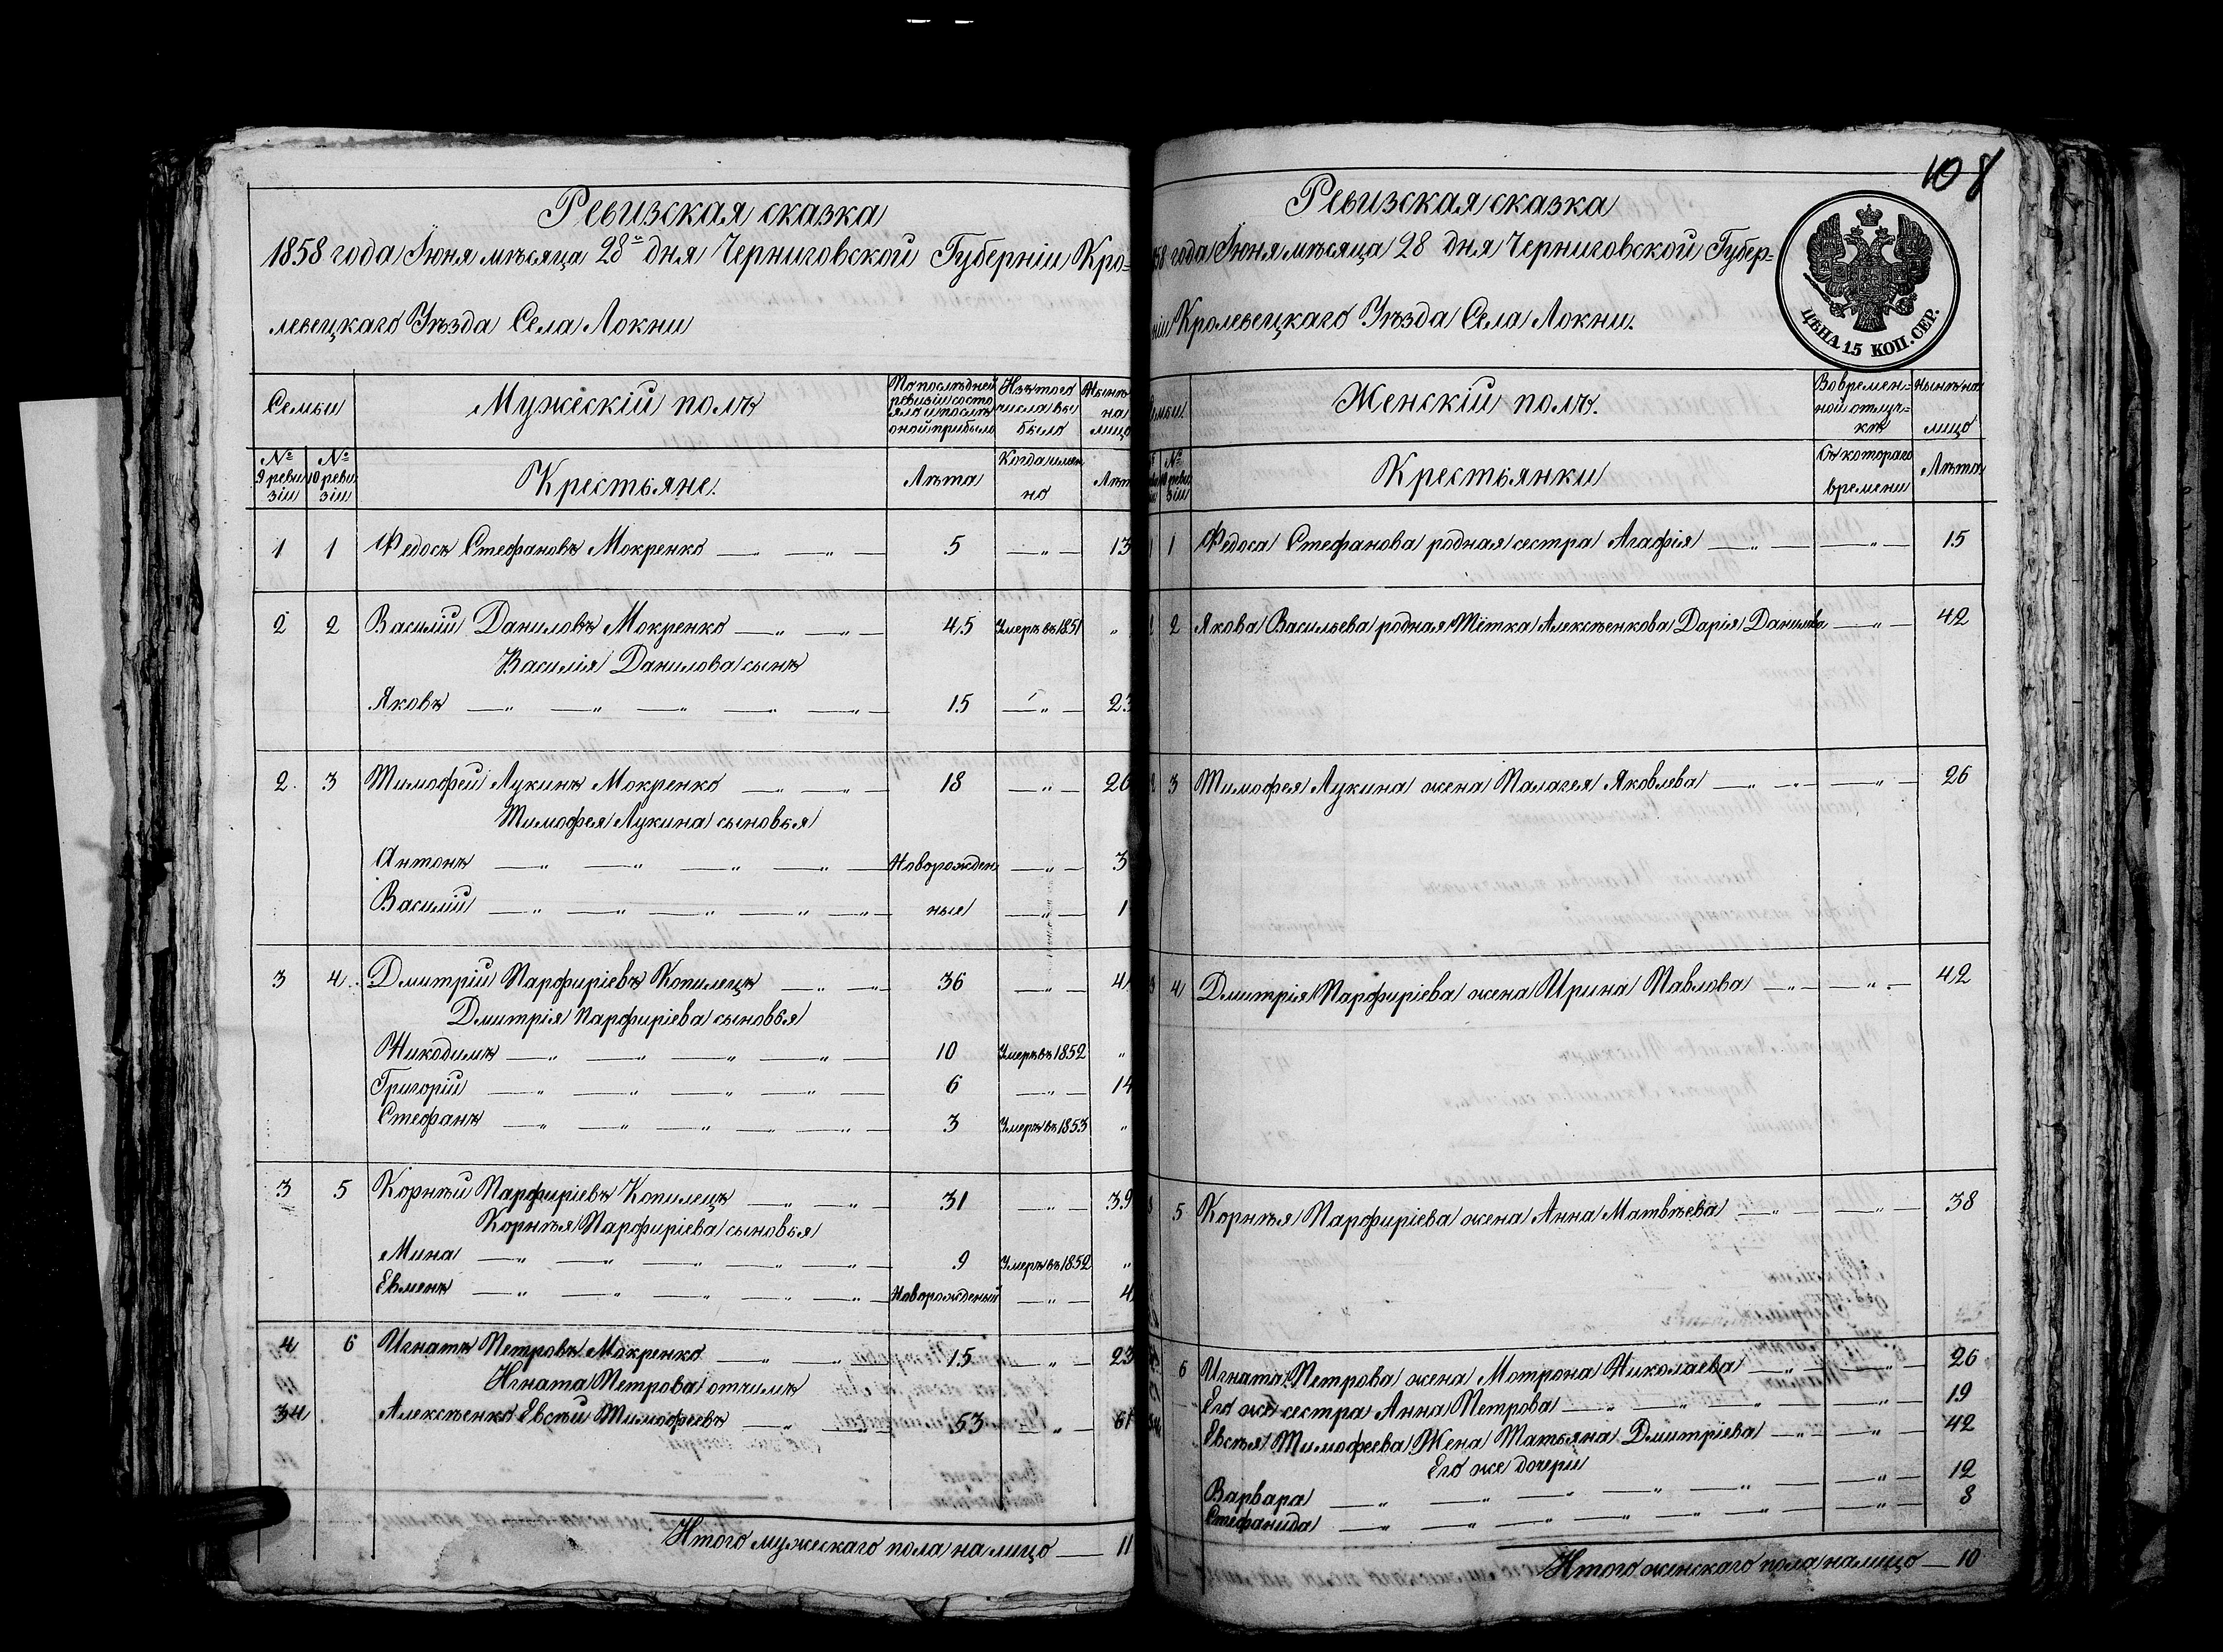 Ревизская сказка
1858 года Іюня мѣсяца 28го дня Черниговской Губерніи Кро=
левецкаго Уѣзда Села Локни
Семьи
Мужескій полъ
По послѣдней ревизіи состояло и послѣ оной прибыло
Изъ того числа выбыло
Нынѣ на лицо
№ 9 ревизіи
№ 10 ревизіи
Крестьяне.
Лѣта
Когда именно
Лѣт
1 1 Федосъ Стефановъ Мокренко — „ — „ — 5 — „ — 13
2 2 Василій Даниловъ Мокренко — „ — „ — 45 Умеръ въ 1851 „
Василія Данилова сынъ
Яковъ — „ — „ — „ — „ — „ — 15 — „ — 23
2. 3 Тимофей Лукинъ Мокренко — „ — „ — 18 — „ — 26
Тимофея Лукина сыновья
Антонъ — „ — „ — „ — „ — Новорожден — „ — 3
Василій — „ — „ — „ — „ — „ — ные — „ — 1
3 4. Дмитрій Парфиріевъ Копилецъ — „ — „ — 36 — „ — 4
Дмитрія Парфиріева сыновья
Никодимъ — „ — „ — „ — „ — 10 Умеръ въ 1852 „
Григорій — „ — „ — „ — „ — 6 — „ — 14
Стефанъ — „ — „ — „ — „ — „ — 3 Умеръ въ 1853 „
3 5 Корнѣй Парфиріевъ Копилецъ — „ — „ — 31 — „ — 39
Корнѣя Парфиріева сыновья
Мина — „ — „ — „ — „ — „ — 9 Умеръ въ 1852 „
Евменъ — „ — „ — „ — „ — „ — Новорожденый — „ — 4
4 6 Игнатъ Петровъ Мокренко — „ — „ — 15 — „ — 23
Игната Петрова отчимъ
34 Алексѣенко Евсѣй Тимофеевъ — „ — 53 — „ — 61
Итого мужескаго пола на лицо — 11
108
Ревизская сказка
58 года Іюня мѣсяца 28 дня Черниговской Губер=
ніи Кролевецкаго Уѣзда Села Локни.
ЦѢНА 15 КОП. СЕР.
емьи
Женскій полъ.
Во времен=ной отлуч=кѣ
Нынѣ на лицо
№ 10 ревизіи
Крестьянки
Съ котораго времени
Лѣта
1 1 Федоса Стефанова родная сестра Агафія — „ — — „ — 15
2 2 Якова Васильева родная тётка Алексѣенкова Дарія Данилова — „ — 42
2 3 Тимофея Лукина жена Палагея Яковлева — „ — „ — — „ — 26
3 4 Дмитрія Парфиріева жена Ирина Павлова — „ — — „ — 42
3 5 Корнѣя Парфиріева жена Анна Матвѣева — „ — — „ — 38
6 Игната Петрова жена Мотрона Николаева — „ — — „ — 26
Его же сестра Анна Петрова — „ — „ — „ — — „ — 19
Евсѣя Тимофеева Жена Татьяна Дмитріева — „ — — „ — 42
Его же дочери
Варвара — „ — „ — „ — „ — „ — — „ — 12
Стефанида — „ — „ — „ — „ — „ — — „ — 8
Итого женскаго пола налицо — 10